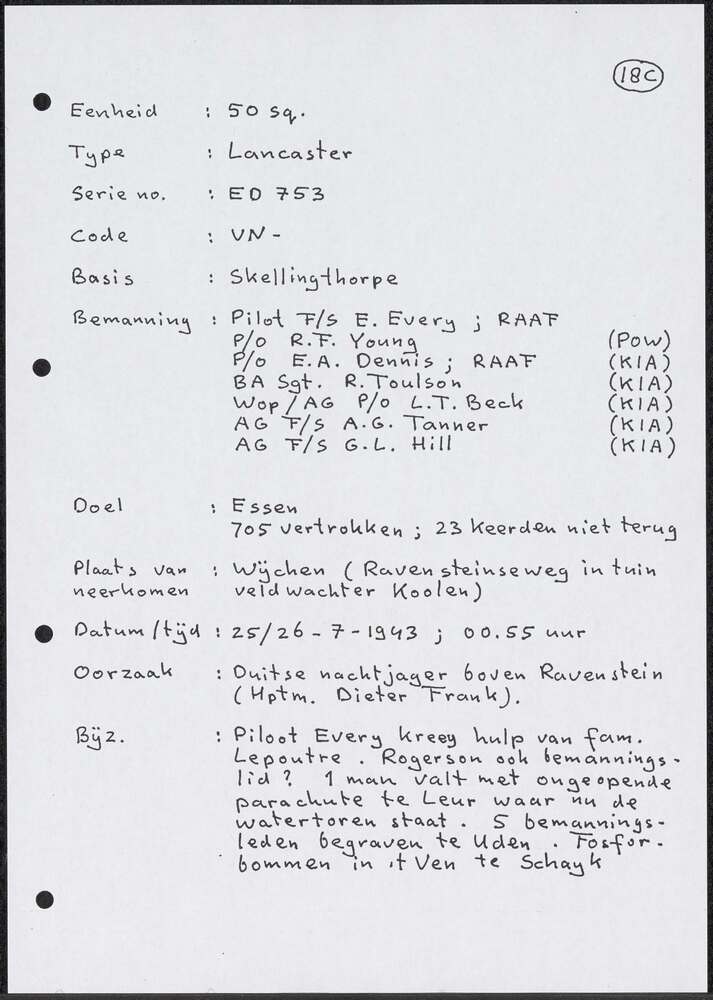 18C
Eenheid : 50 sq.
Type : Lancaster
Serie no. : ED 753
Code : VN -
Basis : Skellingthorpe
Bemanning : Pilot F/S E. Every ; RAAF
P/O R.F. Young (POW)
P/O E.A. Dennis ; RAAF (KIA)
BA Sgt. R. Toulson (KIA)
Wop/AG P/O L.T. Beck (KIA)
AG F/S A.G. Tanner (KIA)
AG F/S G.L. Hill (KIA)
Doel : Essen
705 vertrokken ; 23 keerden niet terug
Plaats van : Wijchen (Ravensteinseweg in tuin
neerkomen veldwachter Koolen)
Datum/tijd : 25/26-7-1943 ; 00.55 uur
Oorzaak : Duitse nachtjager boven Ravenstein
(Hptm. Dieter Frank).
Bijz. : Piloot Every kreeg hulp van fam.
Lepoutre. Rogerson ook bemannings-
lid? 1 man valt met ongeopende
parachute te Leur waar nu de
watertoren staat. 5 bemannings-
leden begraven te Uden. Fosfor-
bommen in 't Ven te Schayk